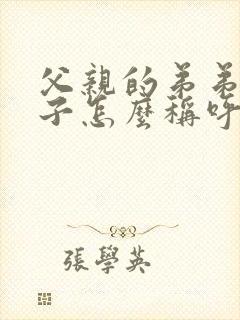 父親的弟弟
子怎麼稱呼
張學英